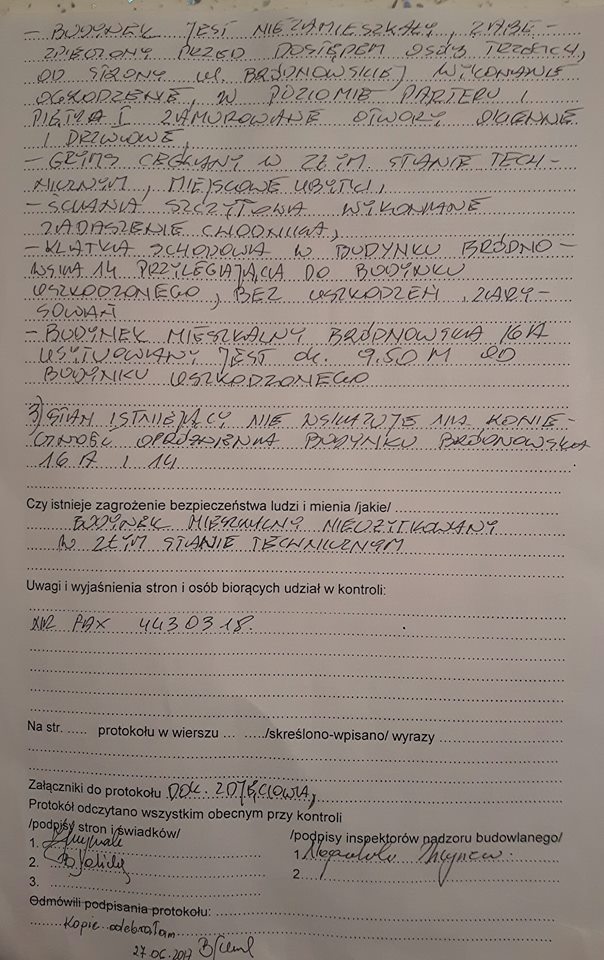 - BUDYNEK JEST NIEZAMIESZKAŁY, ZABE-
ZPIECZONY PRZED DOSTĘPEM OSÓB TRZECICH,
OD STRONY ul. BRÓDNOWSKIEJ WYKONANIE
OGRODZENIE, W POZIOMIE PARTERU i
PIĘTRA I ZAMUROWANE OTWORY OKIENNE
I DRZWIOWE,
- GZYMS CEGLANY W ZŁYM STANIE TECH-
NICZNYM, MIEJSCOWE UBYTKI,
- ŚCIANA SZCZYTOWA WYKONANE
ZADASZENIE CHODNIKA,
- KLATKA SCHODOWA W BUDYNKU BRÓDNO-
WSKA 14 PRZYLEGAJĄCA DO BUDYNKU
USZKODZONEGO, BEZ USZKODZEŃ, ZARY-
SOWAŃ
- BUDYNEK MIESZKALNY BRÓDNOWSKA 16A
USYTUOWANY JEST ok. 9.50 M OD
BUDYNKU USZKODZONEGO
3) STAN ISTNIEJĄCY NIE WSKAZUJE NA KONIE-
CZNOŚĆ OPRÓŻNIENIA BUDYNKU BRÓDNOWSKA
16A i 14
Czy istnieje zagrożenie bezpieczeństwa ludzi i mienia /jakie/
BUDYNEK MIESZKALNY NIEUŻYTKOWANY
W ZŁYM STANIE TECHNICZNYM
Uwagi i wyjaśnienia stron i osób biorących udział w kontroli:
NR FAX 4430318.
Na str. ...... protokołu w wierszu ... ...../skreślono-wpisano/ wyrazy
Załączniki do protokołu DOK. ZDJĘCIOWA,
Protokół odczytano wszystkim obecnym przy kontroli
/podpisy stron i świadków/
1.
2.
3.
/podpisy inspektorów nadzoru budowlanego/
1.
2
Odmówili podpisania protokołu:
Kopie odebrałam
27.06.2017